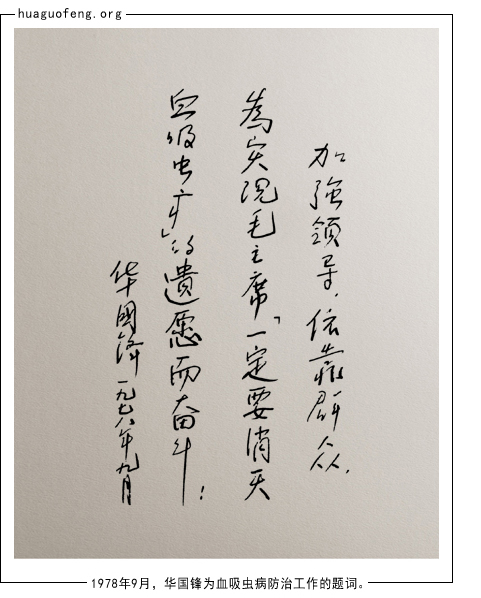 huaguofeng.org
加強領导，依靠群众，
為实现毛主席「一定要消灭
血吸虫病」的遺愿而奋斗！
华國锋 一九七八年九月
1978年9月，华国锋为血吸虫病防治工作的题词。